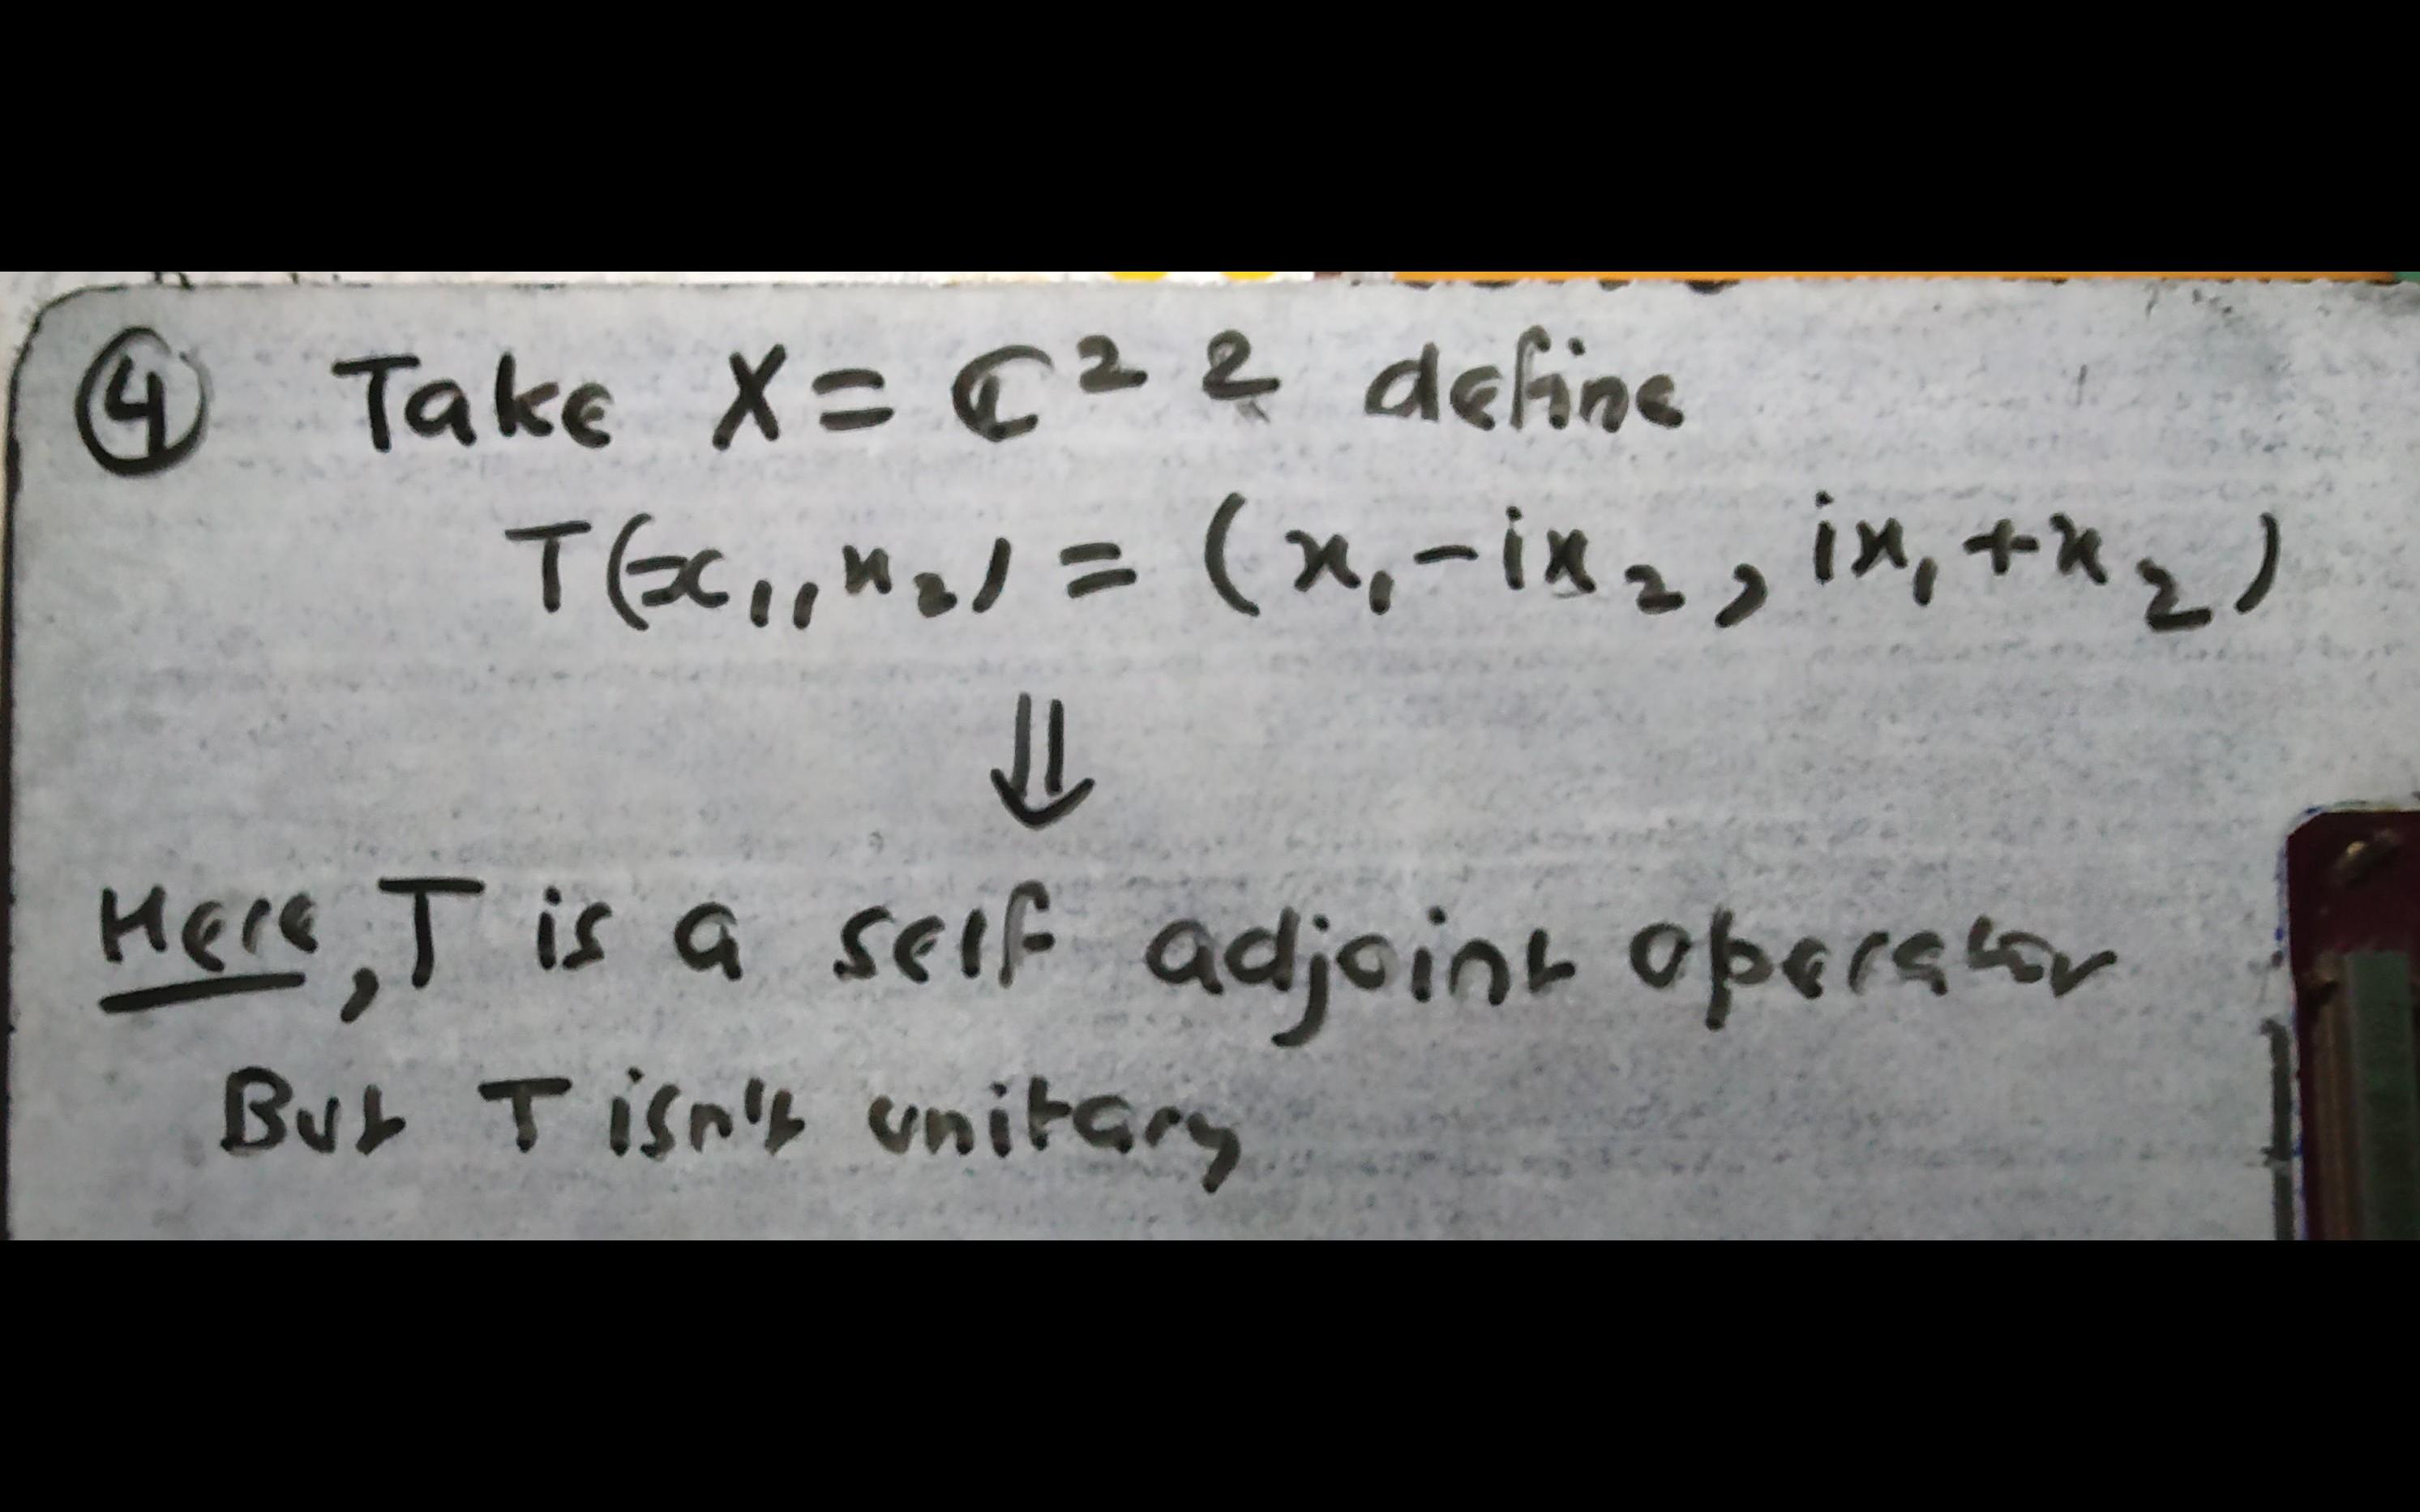 ④ Take X = ℂ² & define
T(x₁, x₂) = (x₁ - ix₂, ix₁ + x₂)
⇓
Here, T is a self adjoint operator
But T isn't unitary